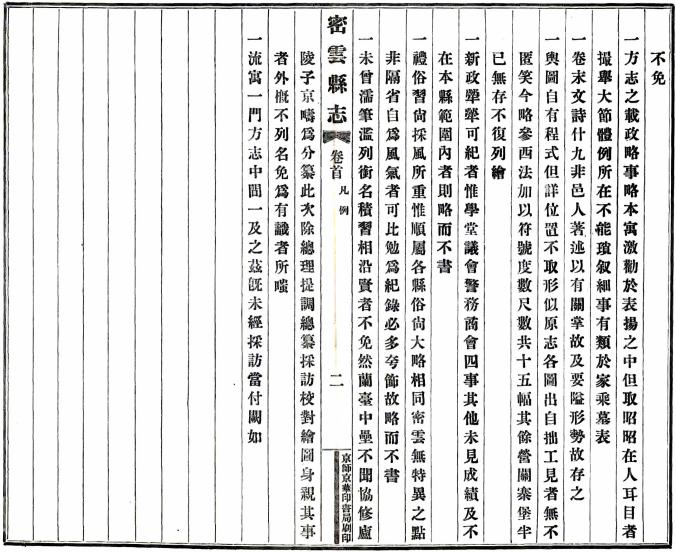 不免
一方志之載政略事略本寓激勸於表揚之中但取昭昭在人耳目者
撮舉大節體例所在不能瑣叙細事有類於家乘墓表
一卷末文詩什九非邑人著述以有關掌故及要隘形勢故存之
一輿圖自有程式但詳位置不取形似原志各圖出自拙工見者無不
匿笑今略參西法加以符號度數尺數共十五幅其餘營關寨堡半
已無存不復列繪
一新政犖犖可紀者惟學堂議會警務商會四事其他未見成績及不
在本縣範圍內者則略而不書
一禮俗習尙採風所重惟順屬各縣俗尙大略相同密雲無特異之點
非隔省自爲風氣者可比勉爲紀錄必多夸飾故略而不書
一未曾濡筆濫列銜名積習相沿賢者不免然蘭臺中壘不聞協修廬
密雲縣志
卷首
凡例
二
京師京華印書局刷印
陵子京疇爲分纂此次除總理提調總纂採訪校對繪圖身親其事
者外概不列名免爲有識者所嗤
一流寓一門方志中間一及之茲旣未經採訪當付闕如